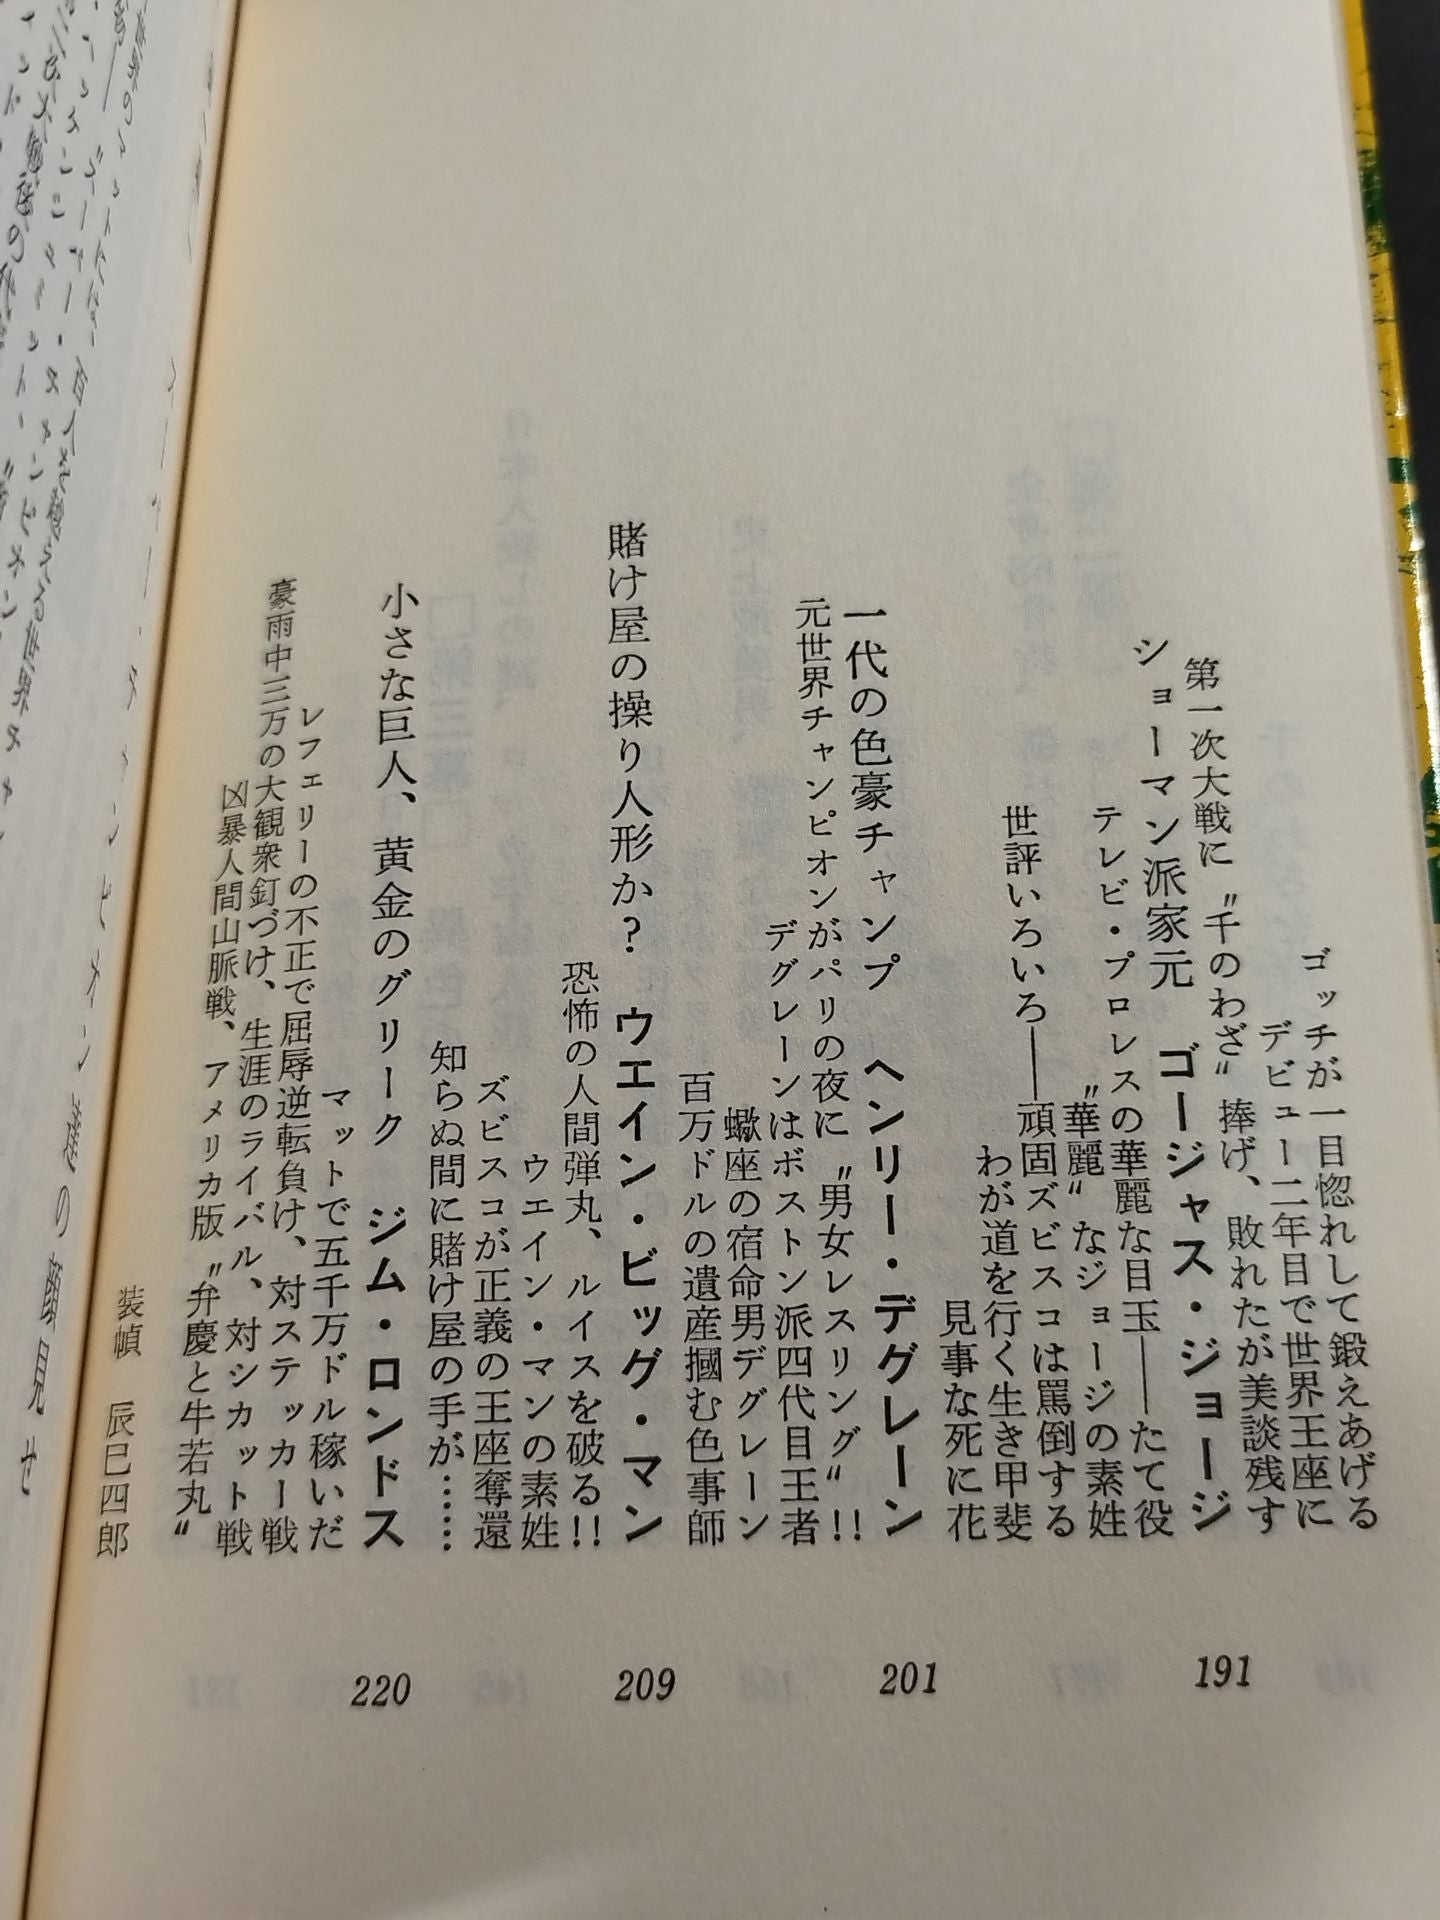 ゴッチが一目惚れして鍛えあげる
デビュー二年目で世界王座に
第一次大戦に〝千のわざ〟捧げ、敗れたが美談残す
ショーマン派家元　ゴージャス・ジョージ　191
テレビ・プロレスの華麗な目玉――たて役
〝華麗〟なジョージの素姓
世評いろいろ――頑固ズビスコは罵倒する
わが道を行く生き甲斐
見事な死に花
一代の色豪チャンプ　ヘンリー・デグレーン　201
元世界チャンピオンがパリの夜に〝男女レスリング〟!!
デグレーンはボストン派四代目王者
蠍座の宿命男デグレーン
百万ドルの遺産摑む色事師
賭け屋の操り人形か？　ウエイン・ビッグ・マン　209
恐怖の人間弾丸、ルイスを破る!!
ウエイン・マンの素姓
ズビスコが正義の王座奪還
知らぬ間に賭け屋の手が……
小さな巨人、黄金のグリーク　ジム・ロンドス　220
マットで五千万ドル稼いだ
レフェリーの不正で屈辱逆転負け、対ステッカー戦
豪雨中三万の大観衆釘づけ、生涯のライバル、対シカット戦
凶暴人間山脈戦、アメリカ版〝弁慶と牛若丸〟
装幀　辰巳四郎